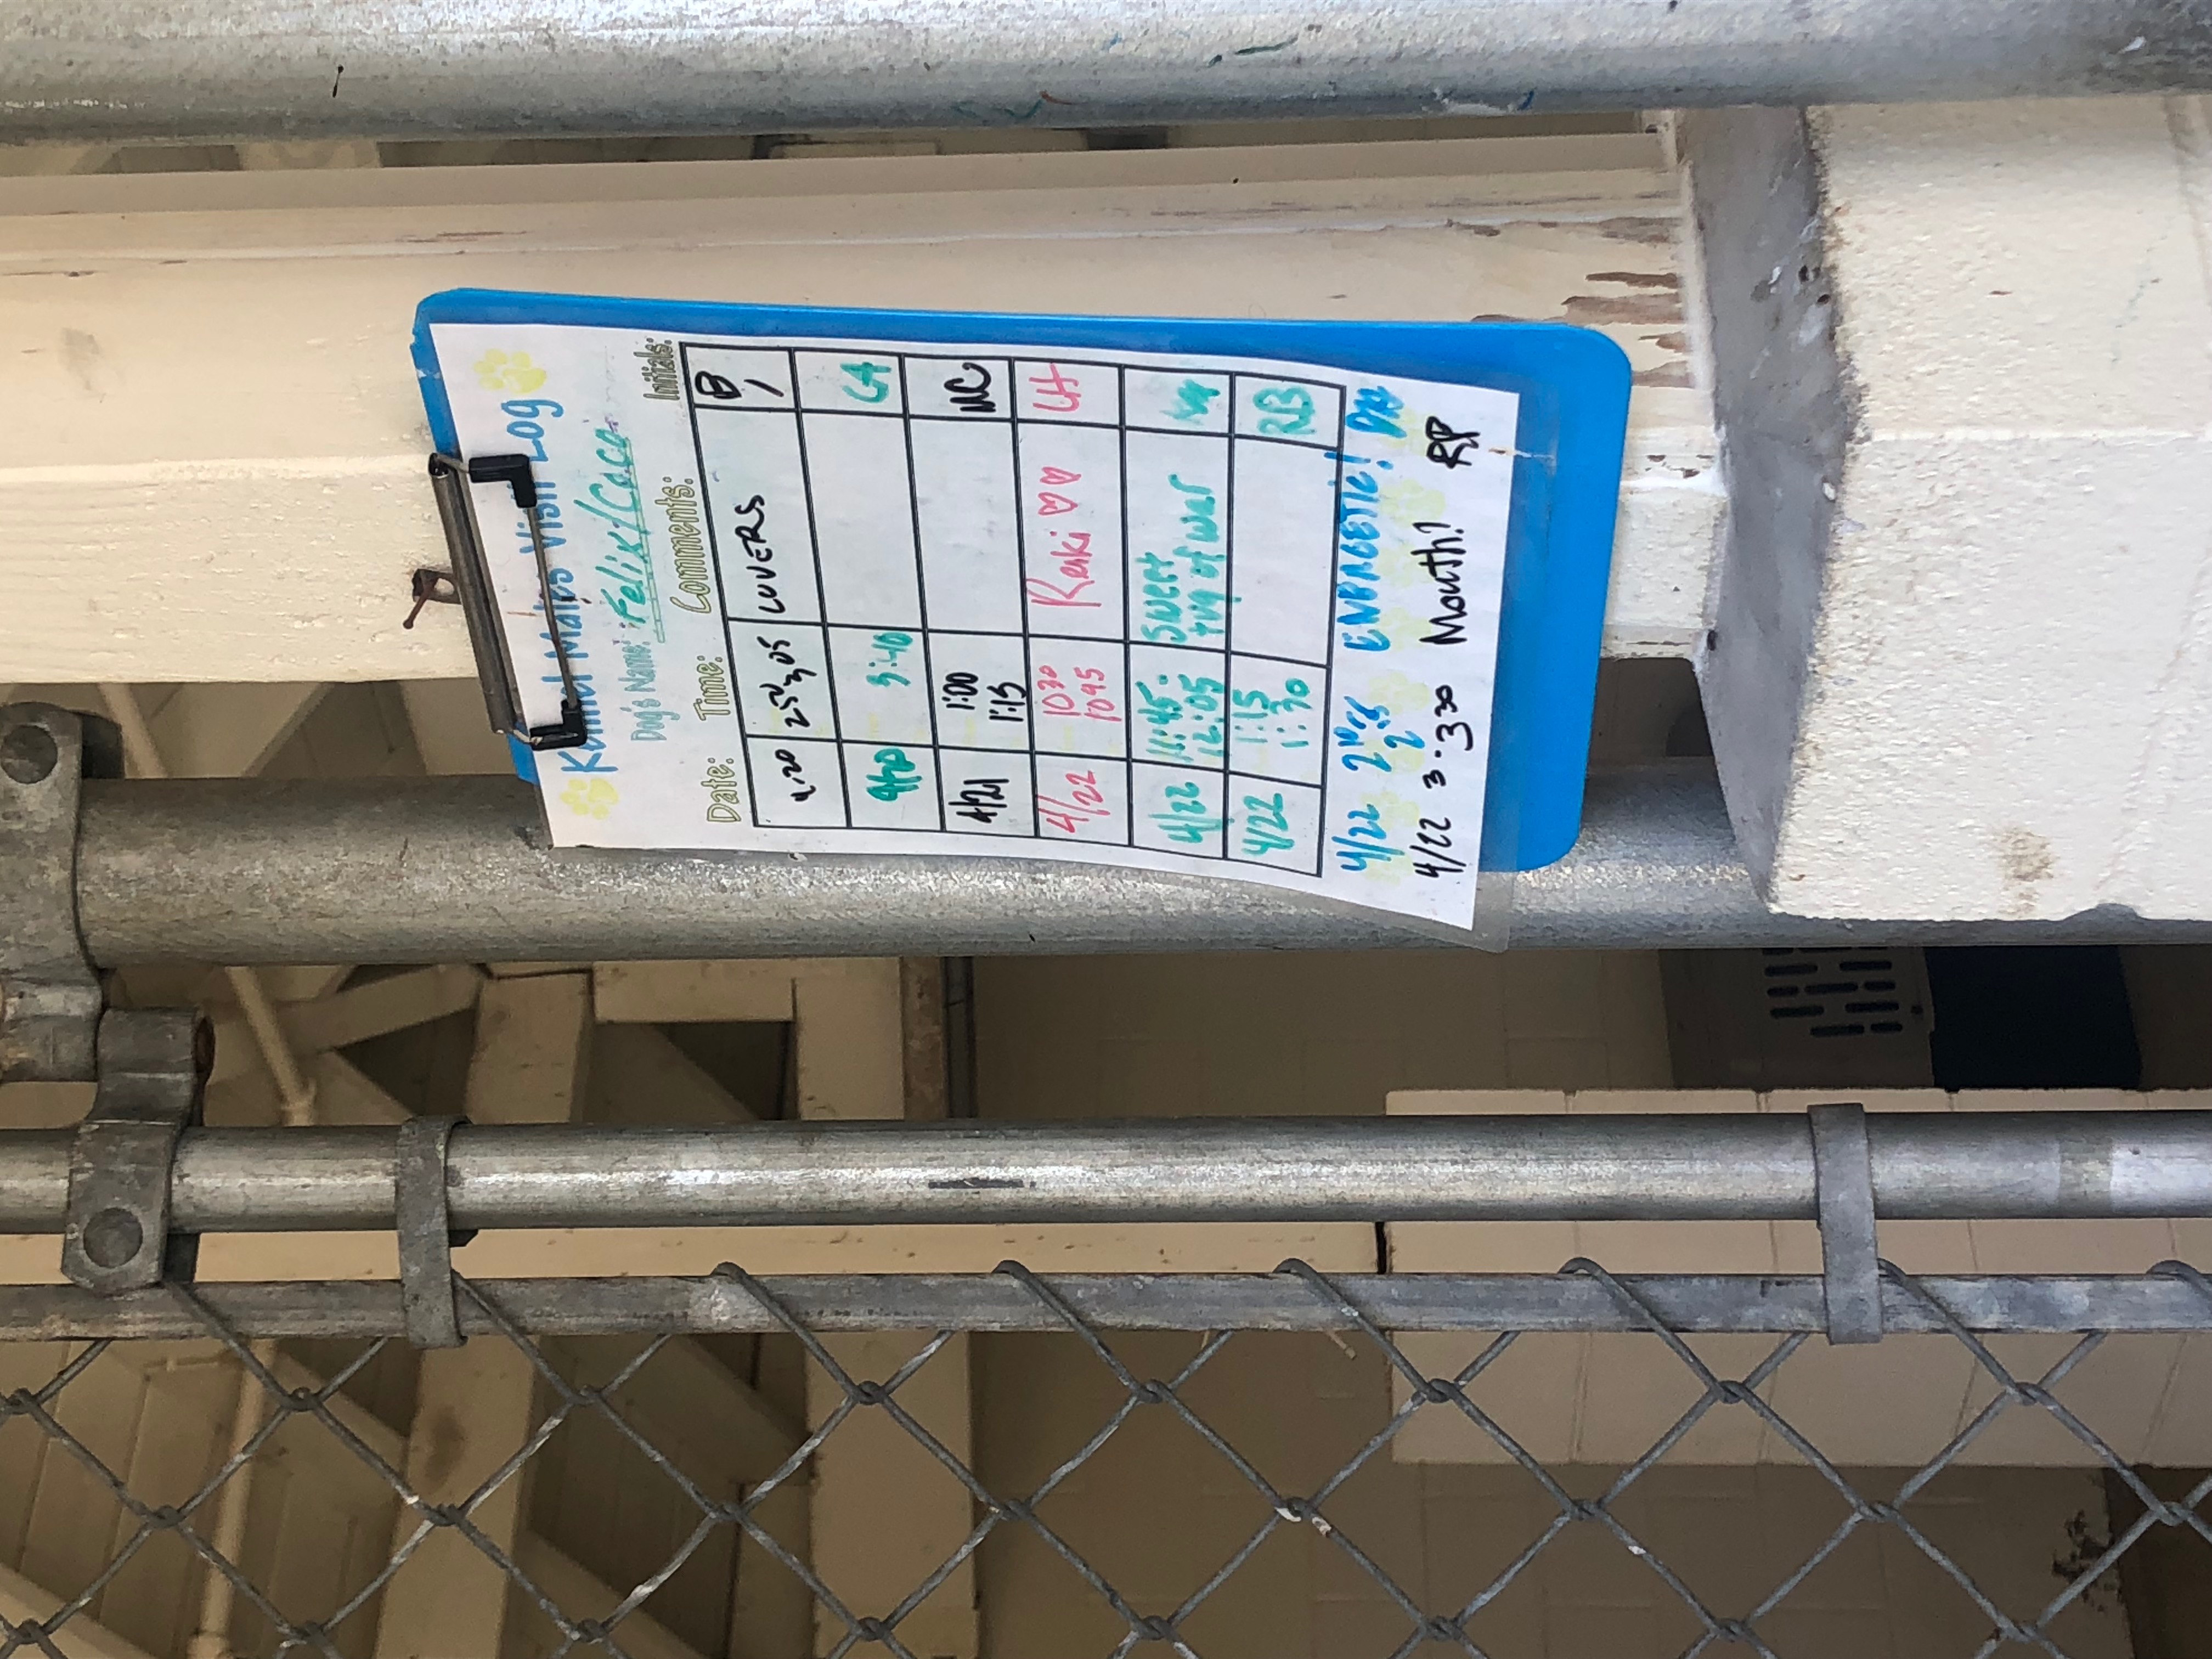 Kennel Mates Visit Log
Dog's Name: Felix/Coco
Date: Time: Comments: Initials:
4-20 2 50 3,05 LOVERS B
4/20 3:40 CA
4/21 1:00 1:15 MC
4/22 10 30 10 45 Reiki ♡♡ LH
4/22 11:45- 12:05 Sweet tug of war
4/22 1:15 1:30 RB
4/22 2 10 ENERGETIC!
4/22 3 - 3 30 Mouth! RP